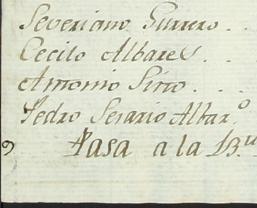 Severiano Gurrero . .
Cecilo Albares . .
Antonio Sirio . .
Pedro Serario Albar.º
Pasa a la B.ᵗᵃ